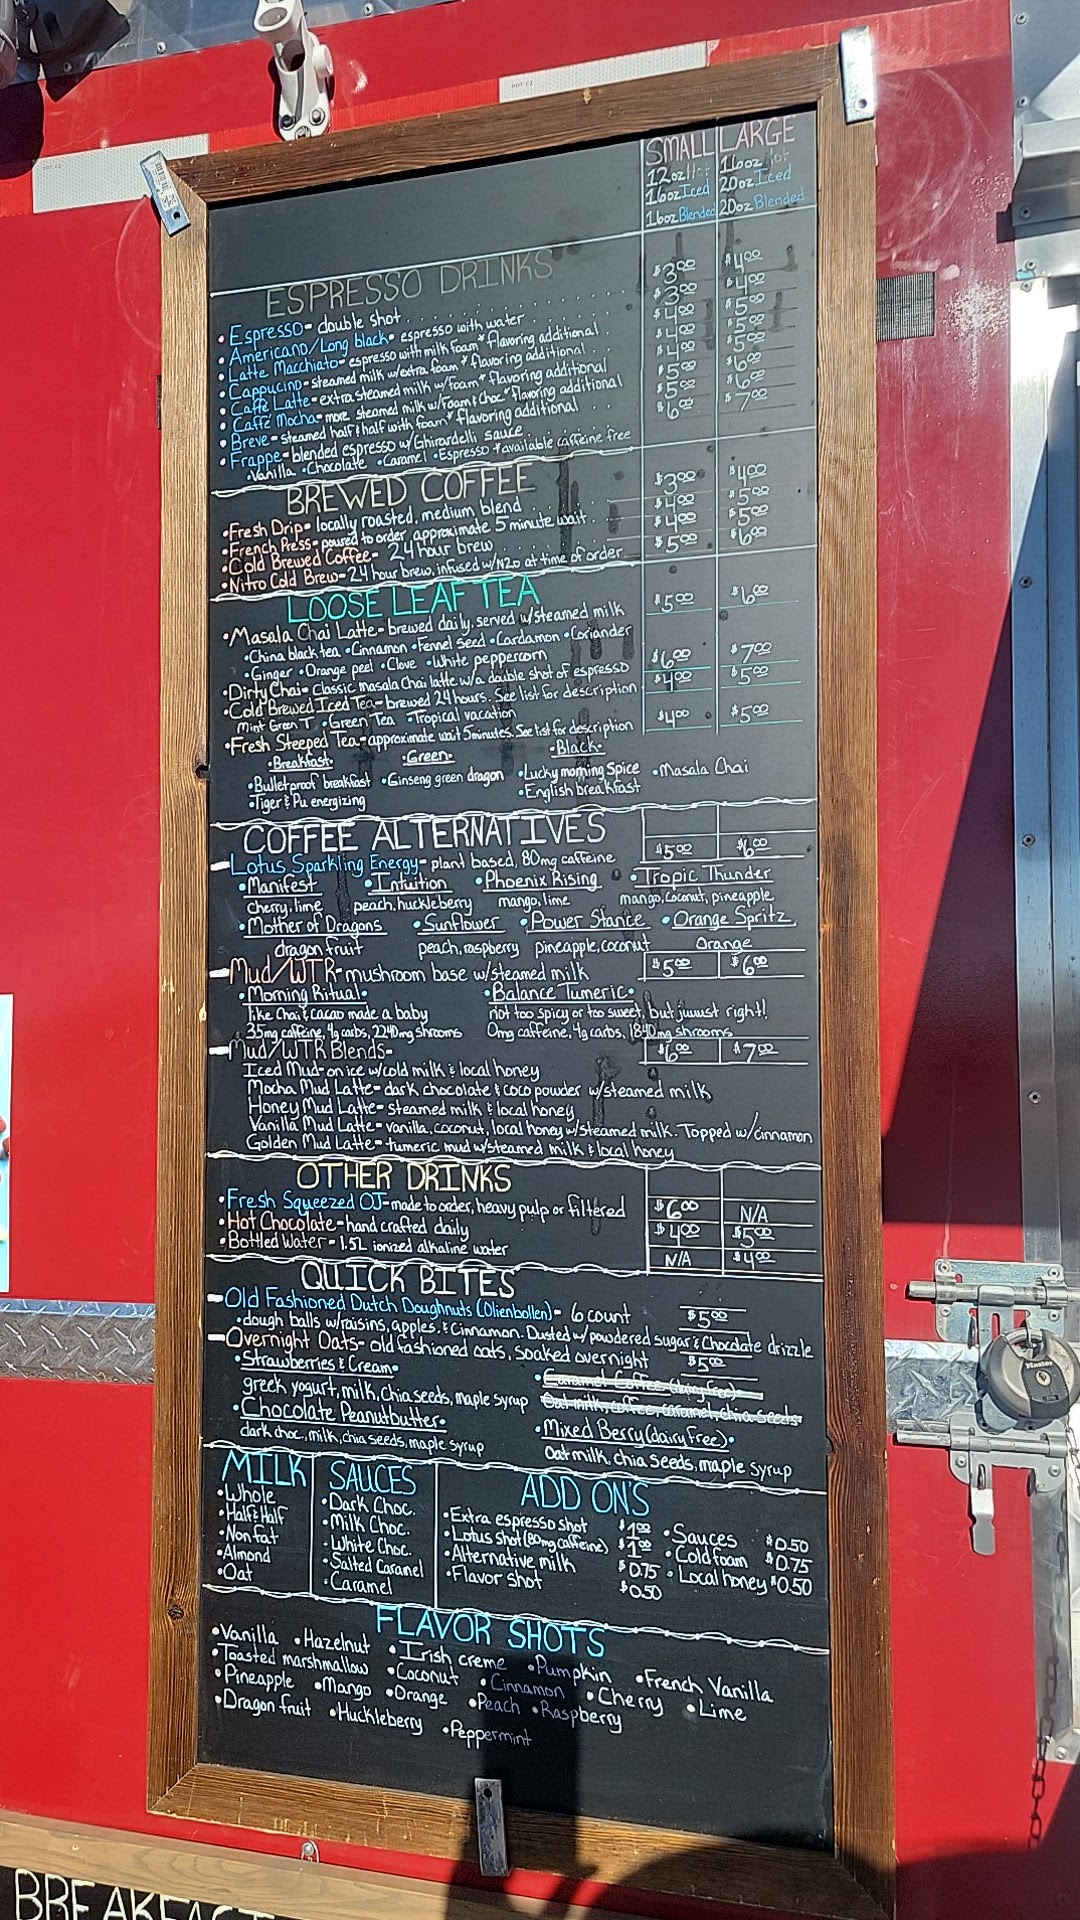 SMALL LARGE
12oz 16oz Hot
16oz Iced 20oz Iced
16oz Blended 20oz Blended
ESPRESSO DRINKS
•Espresso- double shot $3.00 $4.00
•Americano/Long black- espresso with water $3.00 $4.00
•Latte Macchiato- espresso with milk foam *flavoring additional $4.00 $5.00
•Cappucino- steamed milk w/extra foam *flavoring additional $4.00 $5.00
•Caffe Latte- extra steamed milk w/foam *flavoring additional $4.00 $5.00
•Caffé Mocha- more steamed milk w/foam & choc *flavoring additional $5.00 $6.00
•Breve- steamed half & half with foam *flavoring additional $5.00 $6.00
•Frappe- blended espresso w/Ghirardelli sauce $6.00 $7.00
•Vanilla •Chocolate •Caramel •Espresso *available caffeine free
BREWED COFFEE
•Fresh Drip- locally roasted, medium blend $3.00 $4.00
•French Press- poured to order, approximate 5 minute wait $4.00 $5.00
•Cold Brewed Coffee- 24 hour brew $4.00 $5.00
•Nitro Cold Brew- 24 hour brew, infused w/N2o at time of order $5.00 $6.00
LOOSE LEAF TEA
•Masala Chai Latte- brewed daily, served w/steamed milk $5.00 $6.00
•China black tea •Cinnamon •Fennel seed •Cardamon •Coriander
•Ginger •Orange peel •Clove •White peppercorn
•Dirty Chai- classic masala Chai latte w/a double shot of espresso $6.00 $7.00
•Cold Brewed Iced Tea- brewed 24 hours. See list for description $4.00 $5.00
Mint Green T •Green Tea •Tropical vacation
•Fresh Steeped Tea- approximate wait 5minutes. See list for description $4.00 $5.00
•Breakfast• •Green• •Black•
•Bulletproof breakfast •Ginseng green dragon •Lucky morning Spice •Masala Chai
•Tiger & Pu energizing •English breakfast
COFFEE ALTERNATIVES
Lotus Sparkling Energy- plant based, 80mg caffeine $5.00 $6.00
•Manifest •Intuition •Phoenix Rising •Tropic Thunder
cherry, lime peach, huckleberry mango, lime mango, coconut, pineapple
•Mother of Dragons •Sunflower •Power Stance •Orange Spritz
dragon fruit peach, raspberry pineapple, coconut Orange
Mud/WTR- mushroom base w/steamed milk $5.00 $6.00
•Morning Ritual• •Balance Tumeric•
like Chai & cacao made a baby not too spicy or too sweet, but juuust right!
35mg caffeine, 4g carbs, 2240mg shrooms 0mg caffeine, 4g carbs, 1840mg shrooms
Mud/WTR Blends- $6.00 $7.00
Iced Mud- on ice w/cold milk & local honey
Mocha Mud Latte- dark chocolate & coco powder w/steamed milk
Honey Mud Latte- steamed milk & local honey
Vanilla Mud Latte- vanilla, coconut, local honey w/steamed milk. Topped w/cinnamon
Golden Mud Latte- tumeric mud w/steamed milk & local honey
OTHER DRINKS
•Fresh Squeezed OJ- made to order, heavy pulp or filtered $6.00 N/A
•Hot Chocolate- hand crafted daily $4.00 $5.00
•Bottled Water- 1.5L ionized alkaline water N/A $4.00
QUICK BITES
Old Fashioned Dutch Doughnuts (Olienbollen)- 6 count $5.00
•dough balls w/raisins, apples, & Cinnamon. Dusted w/powdered sugar & Chocolate drizzle
Overnight Oats- old fashioned oats, soaked overnight $5.00
•Strawberries & Cream• •Caramel Coffee (dairy free)•
greek yogurt, milk, chia seeds, maple syrup Oat milk, coffee, caramel, chia seeds
•Chocolate Peanutbutter• •Mixed Berry (dairy free)•
dark choc, milk, chia seeds, maple syrup Oat milk, chia seeds, maple syrup
MILK SAUCES ADD ON'S
•Whole •Dark Choc. •Extra espresso shot $1.00 •Sauces $0.50
•Half & Half •Milk Choc. •Lotus shot (80mg caffeine) $1.00 •Cold foam $0.75
•Nonfat •White Choc. •Alternative milk $0.75 •Local honey $0.50
•Almond •Salted Caramel •Flavor shot $0.50
•Oat •Caramel
FLAVOR SHOTS
•Vanilla •Hazelnut •Irish creme •Pumpkin •French Vanilla
•Toasted marshmallow •Coconut •Cinnamon •Cherry •Lime
•Pineapple •Mango •Orange •Peach •Raspberry
•Dragon fruit •Huckleberry •Peppermint
Master
BREAKFAST